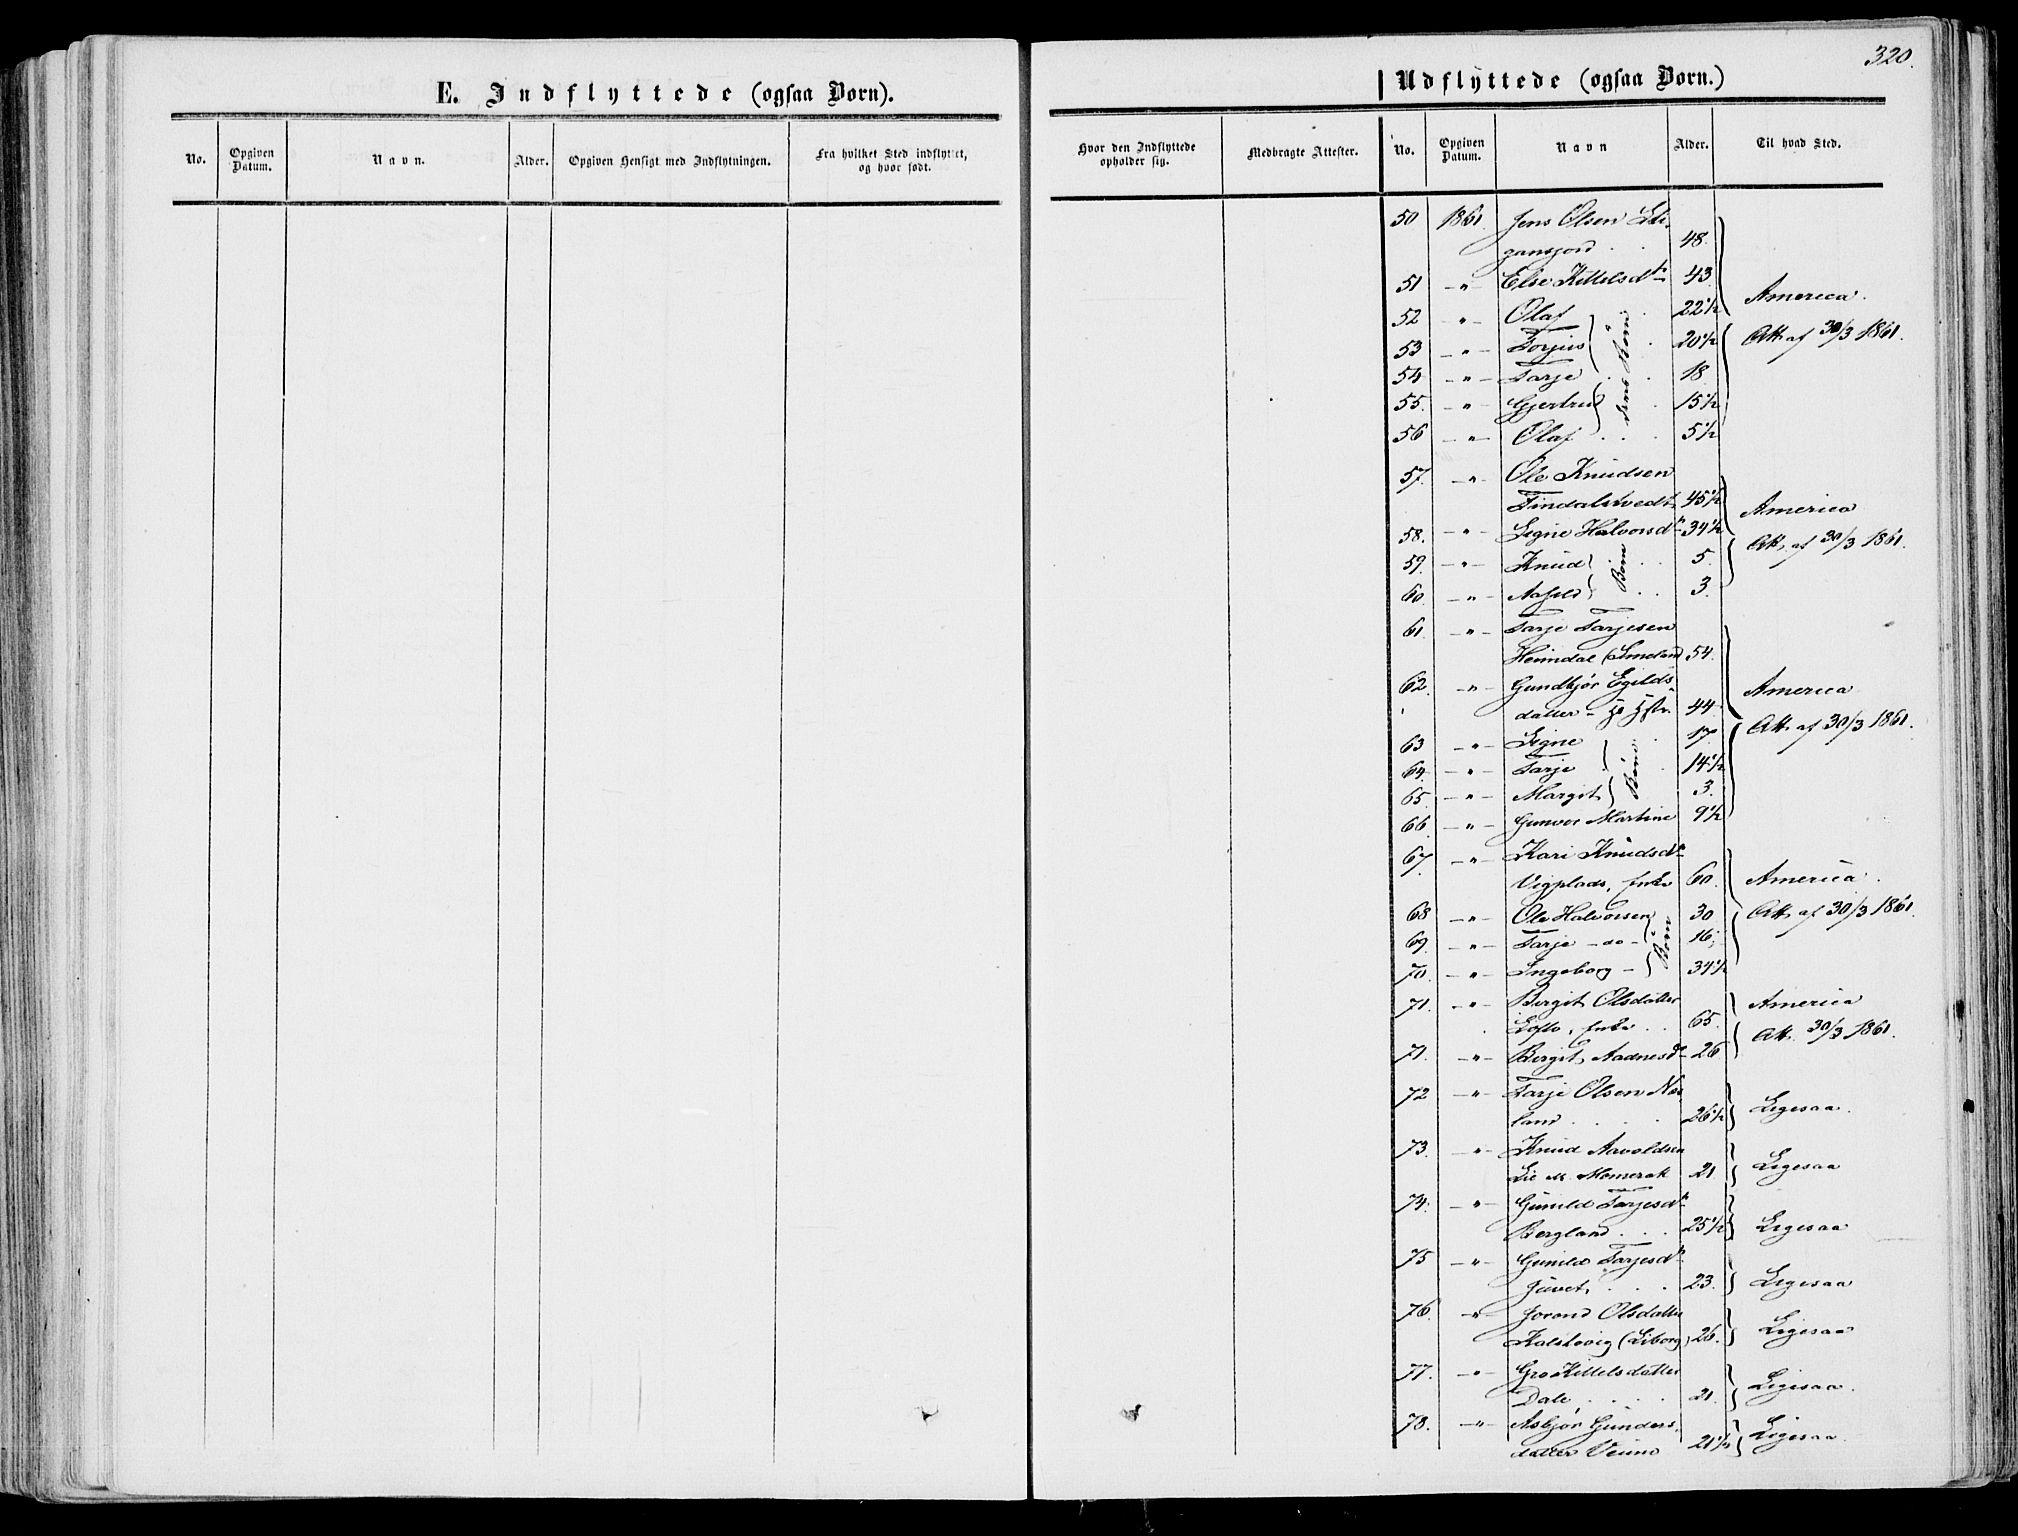 320.
E. Indflyttede (ogsaa Børn).
Udflyttede (ogsaa Børn.)
No. Opgiven Datum. Navn. Alder. Opgiven Hensigt med Indflytningen. Fra hvilket Sted indflyttet, og hvor født.
Hvor den Indflyttede opholder sig. Medbragte Attester. No. Opgiven Datum. Navn Alder. Til hvad Sted.
50 1861. Jens Olsen
48.
51 -"- Else Kittelsdtr 43
52 -"- Olaf 22½ America.
53 -"- Torjus 20½ Att. af 30/3 1861.
54 -"- Tarje 18
55. -"- Gjertrud Børn 15½
56 -"- Olaf 5½
57. -"- Ole Knudsen
Tindalstvedt 45½ America
58. -"- Signe Halvorsdr 34½
59. -"- Knud 5. Att. af 30/3 1861.
60. -"- Børn 3.
61. -"- Tarje Tarjesen
Heimdal 54.
62. -"- Gundbjør Egilds- America
datter - 44
63 -"- Signe 17 Att. af 30/3 1861.
64. -"- Tarje Børn 14½
65. -"- Margit 3.
66. -"- Gunvor Martine 9½
67. -"- Kari Knudsdr
Vigplads, Enke 60. America.
68 -"- Ole Halvorsen 30 Att. af 30/3 1861.
69. -"- Tarje -do- Børn 16.
70. -"- Ingeborg - 34½
71. -"- Bergit Olsdatter America
Lofto, Enke .. 65. Att. 30/3 1861.
71. -"- Bergit Aadnesdr 26
72 -"- Tarje Olsen Næs
land .... 26½ Ligesaa.
73. -"- Knud Aavoldsen
Lie u. Momrak 21. Ligesaa
74. -"- Gunild Tarjesdr
Bergland ... 25½ Ligesaa
75 -"- Gunild Tarjesdr
Juvet. ... 23. Ligesaa
76. -"- Jorond Olsdatter
Kalshovig (Liborg) 26. Ligesaa
77. -"- Gro Kittelsdatter
Dale ..... 21. Ligesaa.
78. -"- Asbjør Gunders-
datter Veum 21½ Ligesaa.